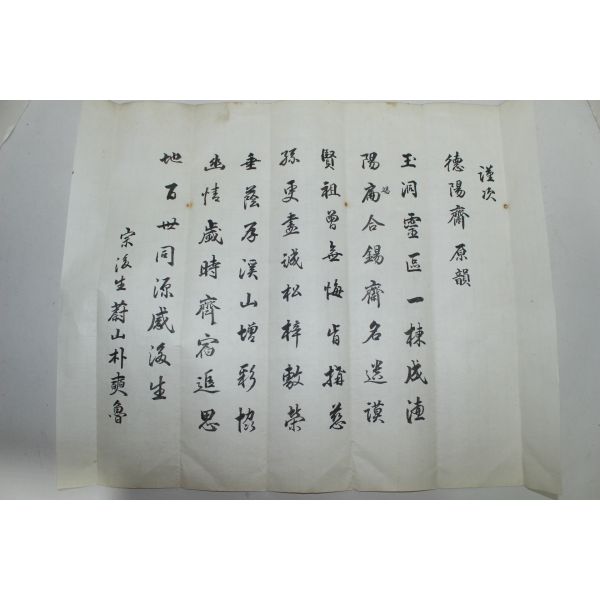 謹次
德陽齋原韻
玉洞靈區一棟成德
陽扁合錫齋名遺謨
賢祖曾無悔肯搆慈
孫更盡誠松梓敷榮
垂蔭厚溪山增彩協
幽情歲時齊宿追思
地百世同源感後生
宗後生蔚山朴奭魯